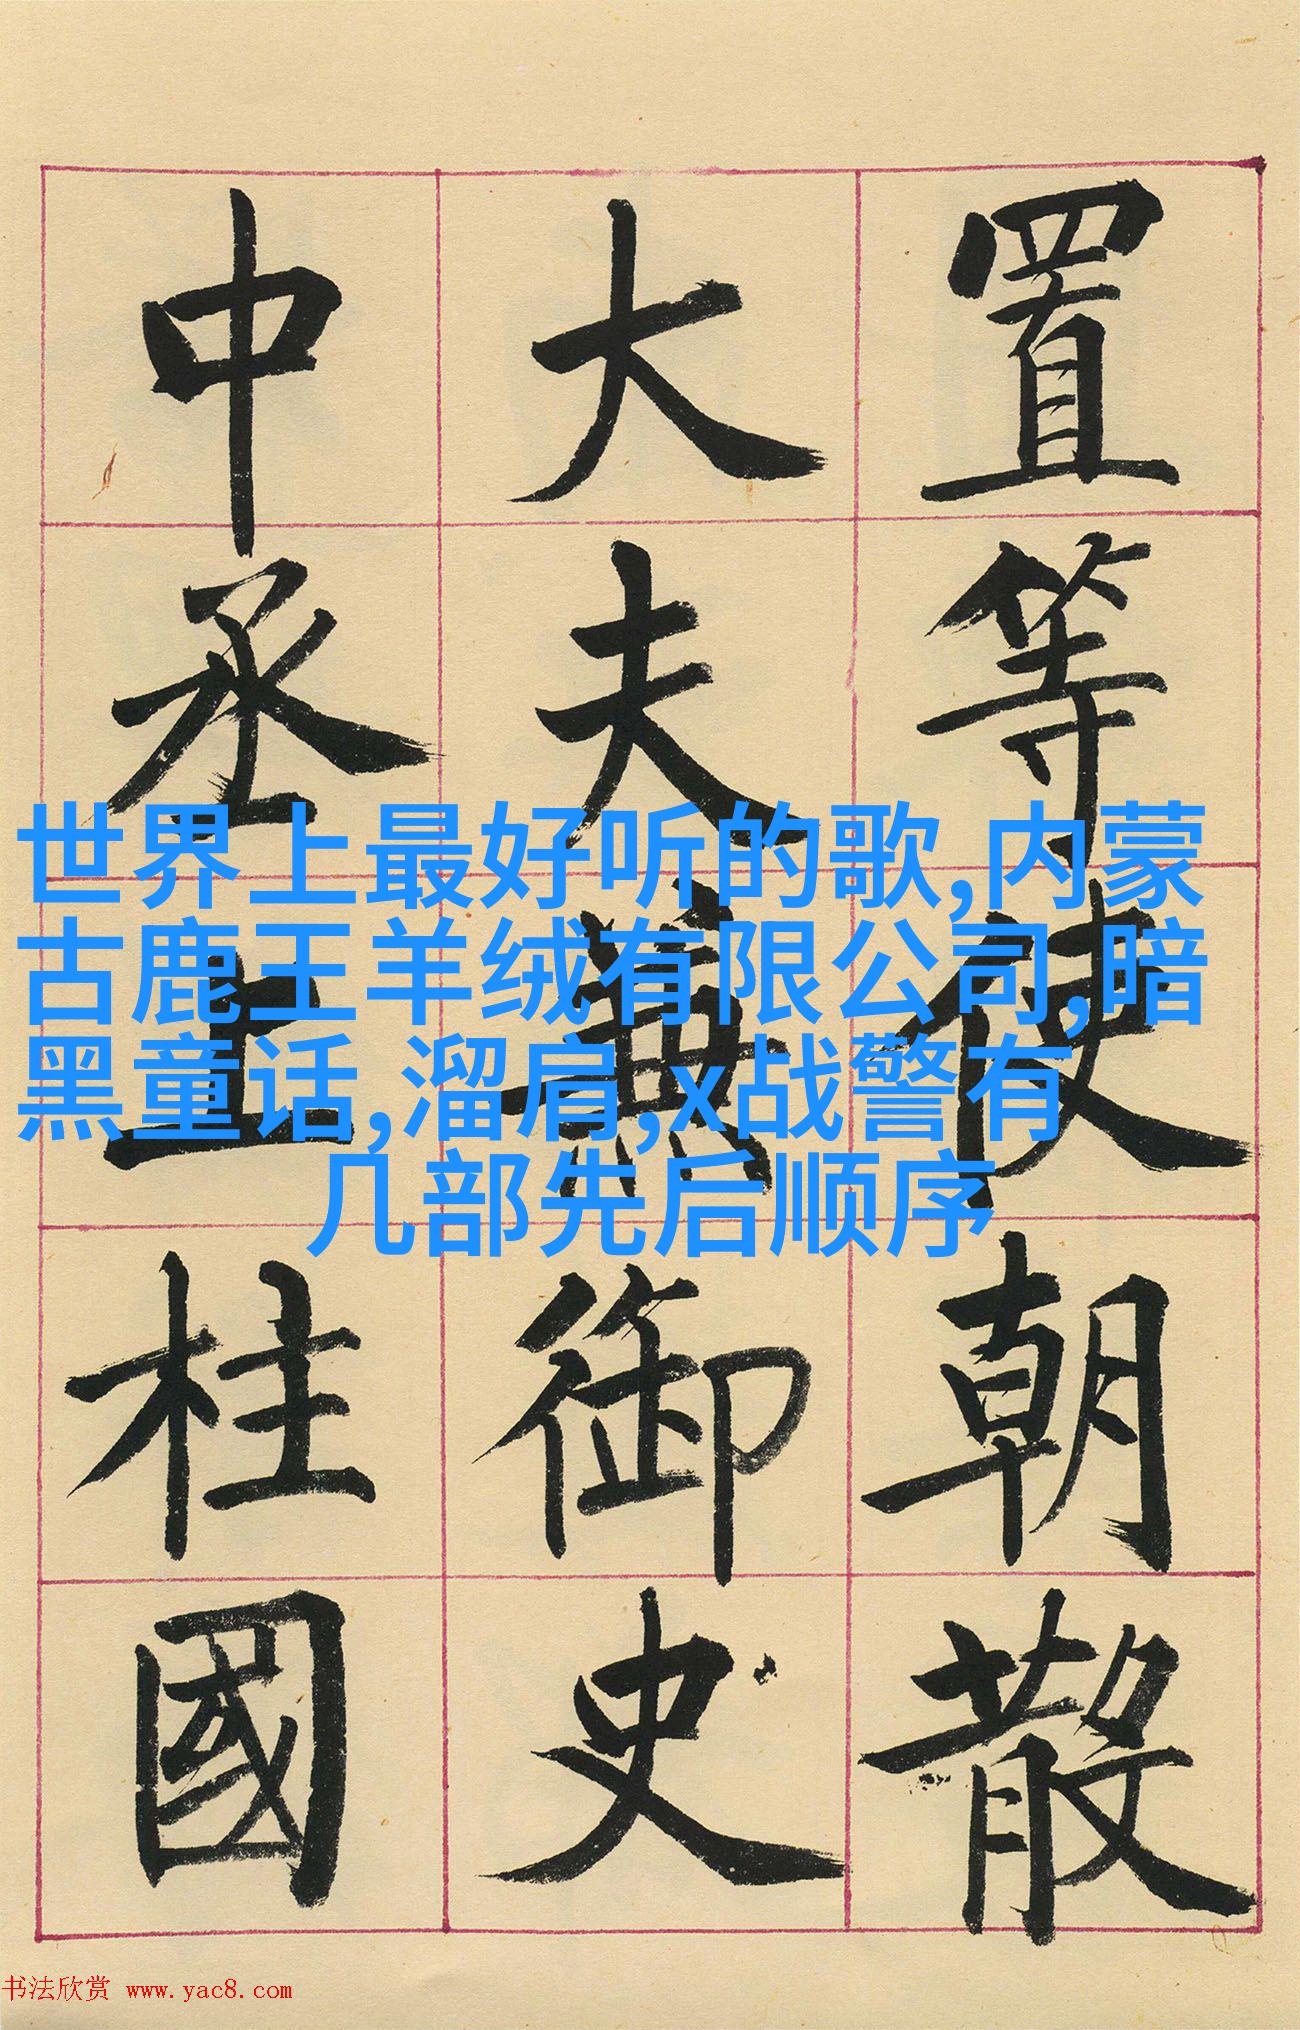 置等使朝散
大夫兼御史
中丞上柱國
世界上最好听的歌,内蒙
古鹿王羊绒有限公司,暗
黑童话,溜肩,x战警有
几部先后顺序
书法欣赏 www.yac8.com